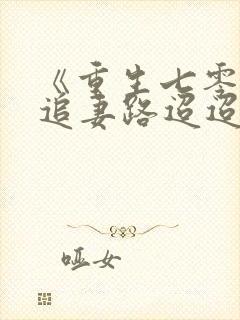 《重生七零
追妻路迢迢
哑女